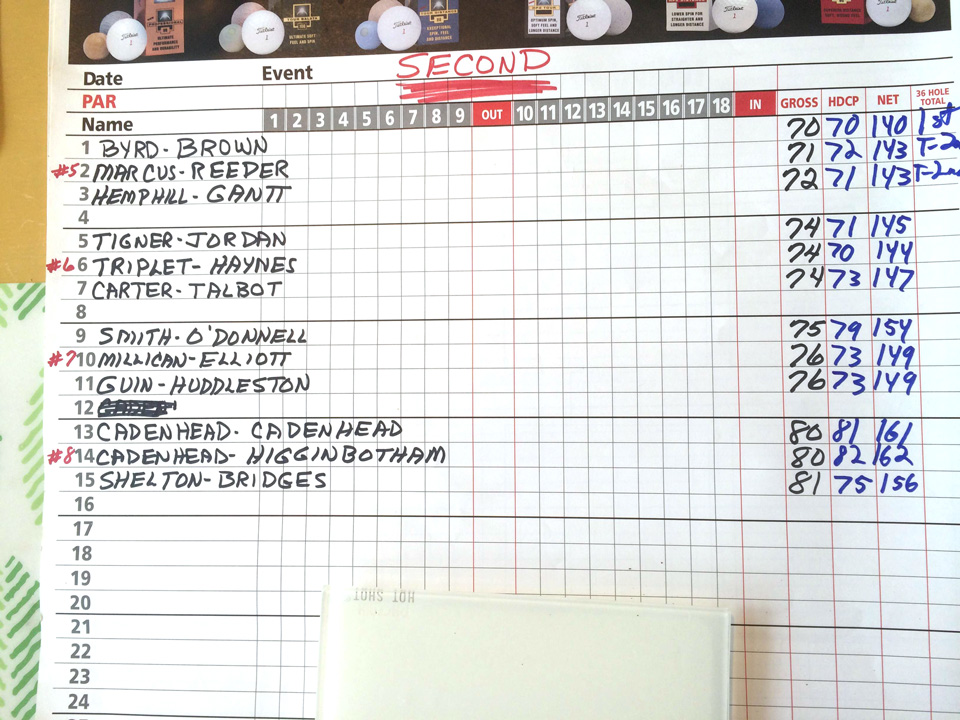 SECOND
Date Event
PAR
Name 1 2 3 4 5 6 7 8 9 OUT 10 11 12 13 14 15 16 17 18 IN GROSS HDCP NET 36 HOLE TOTAL
1 BYRD-BROWN 70 70 140 1st
#5 2 MARCUS-REEDER 71 72 143 T-2nd
3 HEMPHILL-GANTT 72 71 143 T-2nd
4
5 TIGNER-JORDAN 74 71 145
#6 6 TRIPLET-HAYNES 74 70 144
7 CARTER-TALBOT 74 73 147
8
9 SMITH-O'DONNELL 75 79 154
#7 10 MILLICAN-ELLIOTT 76 73 149
11 GUIN-HUDDLESTON 76 73 149
12
13 CADENHEAD-CADENHEAD 80 81 161
#8 14 CADENHEAD-HIGGINBOTHAM 80 82 162
15 SHELTON-BRIDGES 81 75 156
16
17
18
19
20
21
22
23
24
HOT SHOT